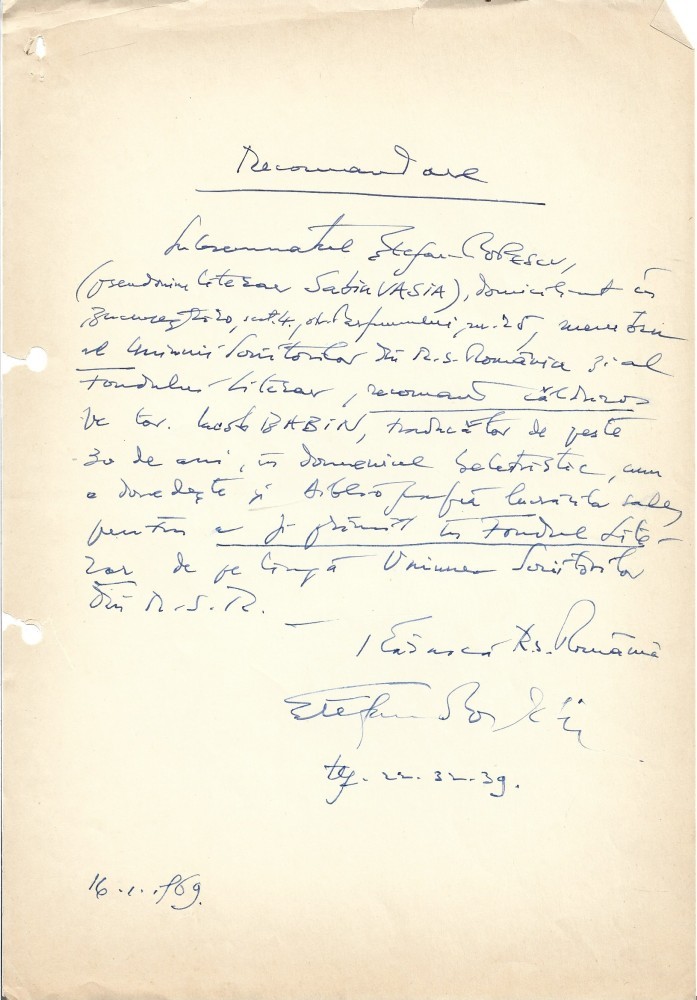 Recomandare
Subsemnatul Ștefan POPESCU,
(pseudonim literar Sabin VASIA), domiciliat în
București 20, sect. 4, str. Parfumului, nr. 25, membru
al Uniunii Scriitorilor din R.S. România și al
Fondului Literar, recomand călduros
pe tov. BABIN, traducător de peste
30 de ani, în domeniul beletristic, cum
o dovedește și bibliografia lucrărilor sale,
pentru a fi primit în Fondul Lite-
rar de pe lîngă Uniunea Scriitorilor
din R.S.R.
R.S. Română
Ștefan
tf. 22.32.39.
16.1.1969.